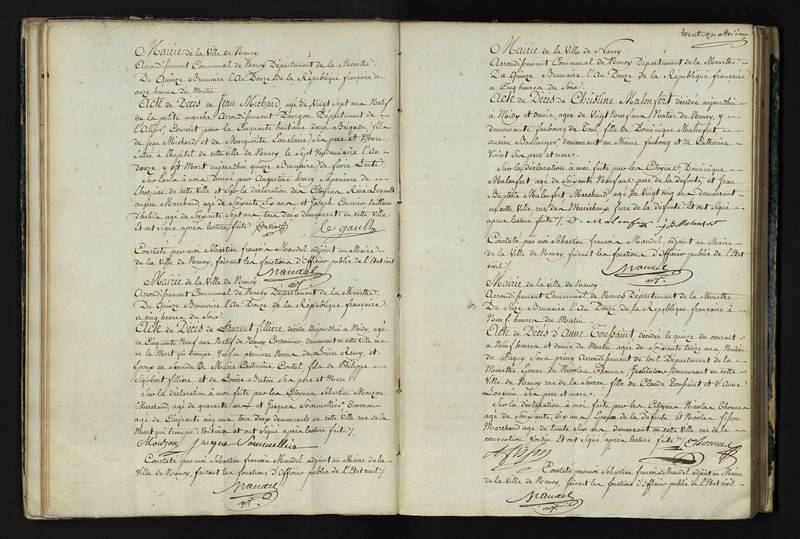 Mairie de la Ville de Nancy
Arrondissement Communal de Nancy Département de la Meurthe
Du Quinze Brumaire l'An Douze de la République française à
onze heures du Matin
Acte de Décès de Jean Michard agé de Vingt Sept ans Natif
de la petite marche Arrondissement Département de
l'Allier,
de Jean Michard et de Marguerite Ses père et Mère
l'hopital de cette Ville de Nancy, le Sept Vendémiaire l'An
douze Mort aujourdhui quinze Brumaire de fièvre Lente
Sur à nous donné par Augustine henry Supérieure de
l'hospice de cette Ville et Sur la déclaration des Citoyens Legault
ancien Marchand agé de Soixante Six ans et Joseph tailleur
d'habits agé de Soixante Sept ans tous deux demeurants en cette Ville
Et ont Signé après lecture faite
le gault
Constaté par moi Sébastien françois Mandel adjoint au Maire
de la Ville de Nancy, faisant les fonctions d'Officier public de l'Etat civil
Mandel
adj.
Mairie de la Ville de Nancy
Arrondissement Communal de Nancy Département de la Meurthe
Du Quinze Brumaire l'An Douze de la République francaise
a cinq heures du Soir
Acte de Décès de Laurent filliere, décédé aujourdhui a Midy, agé
de Cinquante Neuf ans Natif de Nancy Cordonnier demeurant en cette Ville rue
de la Mort qui trompe Veuf en premières Noces de Remy, et
Epoux en seconde de Marie Catherine fils de Philippe
filliere, et de Louise Breton Ses père et Mere
Sur la déclaration à moi faite par les Citoyens Sébastien Monzon
Marchand agé de quarante ans et Jacques Sommellier Tonneau
agé de Cinquante ans tous deux demeurants en cette Ville rue de la
Mort qui trompe Voisins et ont Signé après lecture faite
Monzon Jacque Sommellier
Constaté par moi Sébastien françois Mandel adjoint au Maire de la
Ville de Nancy, faisant les fonctions d'Officier public de l'Etat civil
Mandel
adj.
trent quatrieme
Mairie de la Ville de Nancy
Arrondissement Communal de Nancy Département de la Meurthe
Du Quinze Brumaire l'An Douze de la République francaise
a Cinq heures du Soir
Acte de Décès de Christine Malenfert décédée aujourdhui
à Midy et demie, agée de Vingt Neuf ans Native de Nancy, y
demeurante faubourg de Toul, fille de Dominique Malenfert
ancien Boulanger demeurant au Même faubourg et de Catherine
Viriot Ses père et mere
Sur la déclaration à moi faite par les Citoyens Dominique
Malenfert agé de Soixante Neuf ans père de la défunte, et Jean
Baptiste Malenfert Marchand agé de Vingt cinq ans demeurant
en cette Ville rue des Maréchaux frere de la défunte Et ont Signé
après lecture faite D. Malenfert J B Malenfert
Constaté par moi Sébastien françois Mandel, adjoint au Maire
de la Ville de Nancy, faisant les fonctions d'Officier public de l'Etat
civil
Mandel
adj.
Mairie de la Ville de Nancy
Arrondissement Communal de Nancy Département de la Meurthe
Du Seize Brumaire l'An Douze de la République francaise à
Neuf heures du Matin
Acte de Décès d'Anne Toussaint, décédée le quinze du courant
a Neuf heures et demie du Matin agée de Soixante treize ans Native
de Prey Arrondissement de Toul Département de la
Meurthe Epouse de Nicolas Thomas Instituteur demeurant en cette
Ville de Nancy rue de la Source, fille de Claude Toussaint et d'Anne
Ses pere et mere
Sur la déclaration à moi faite par les Citoyens Nicolas Thomas
agé de Soixante, dix ans Epoux de la défunte et Nicolas
Marchand agé de trente Six ans demeurant en cette Ville rue de la
convention Voisin Et ont Signé après lecture faite Thomas
Constaté par moi Sébastien françois Mandel adjoint au Maire
de la Ville de Nancy, faisant les fonctions d'Officier public de l'Etat civil
Mandel
adj.